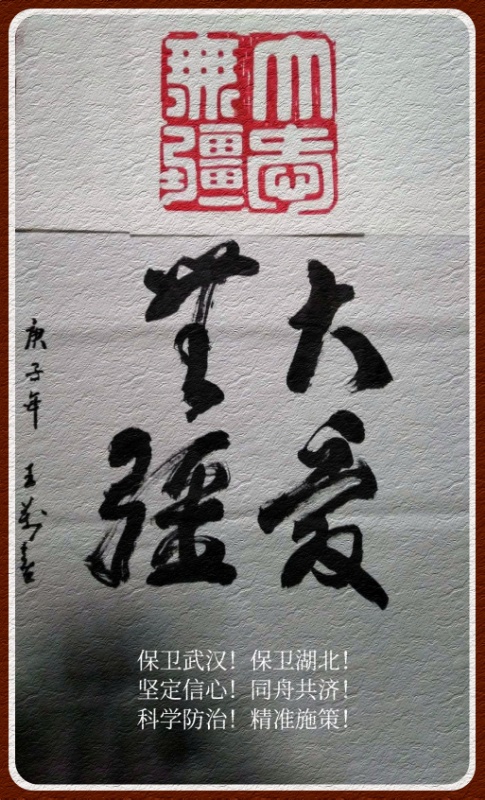 大㤅
無疆
大爱
無疆
庚子年 王
保卫武汉！保卫湖北！
坚定信心！同舟共济！
科学防治！精准施策！